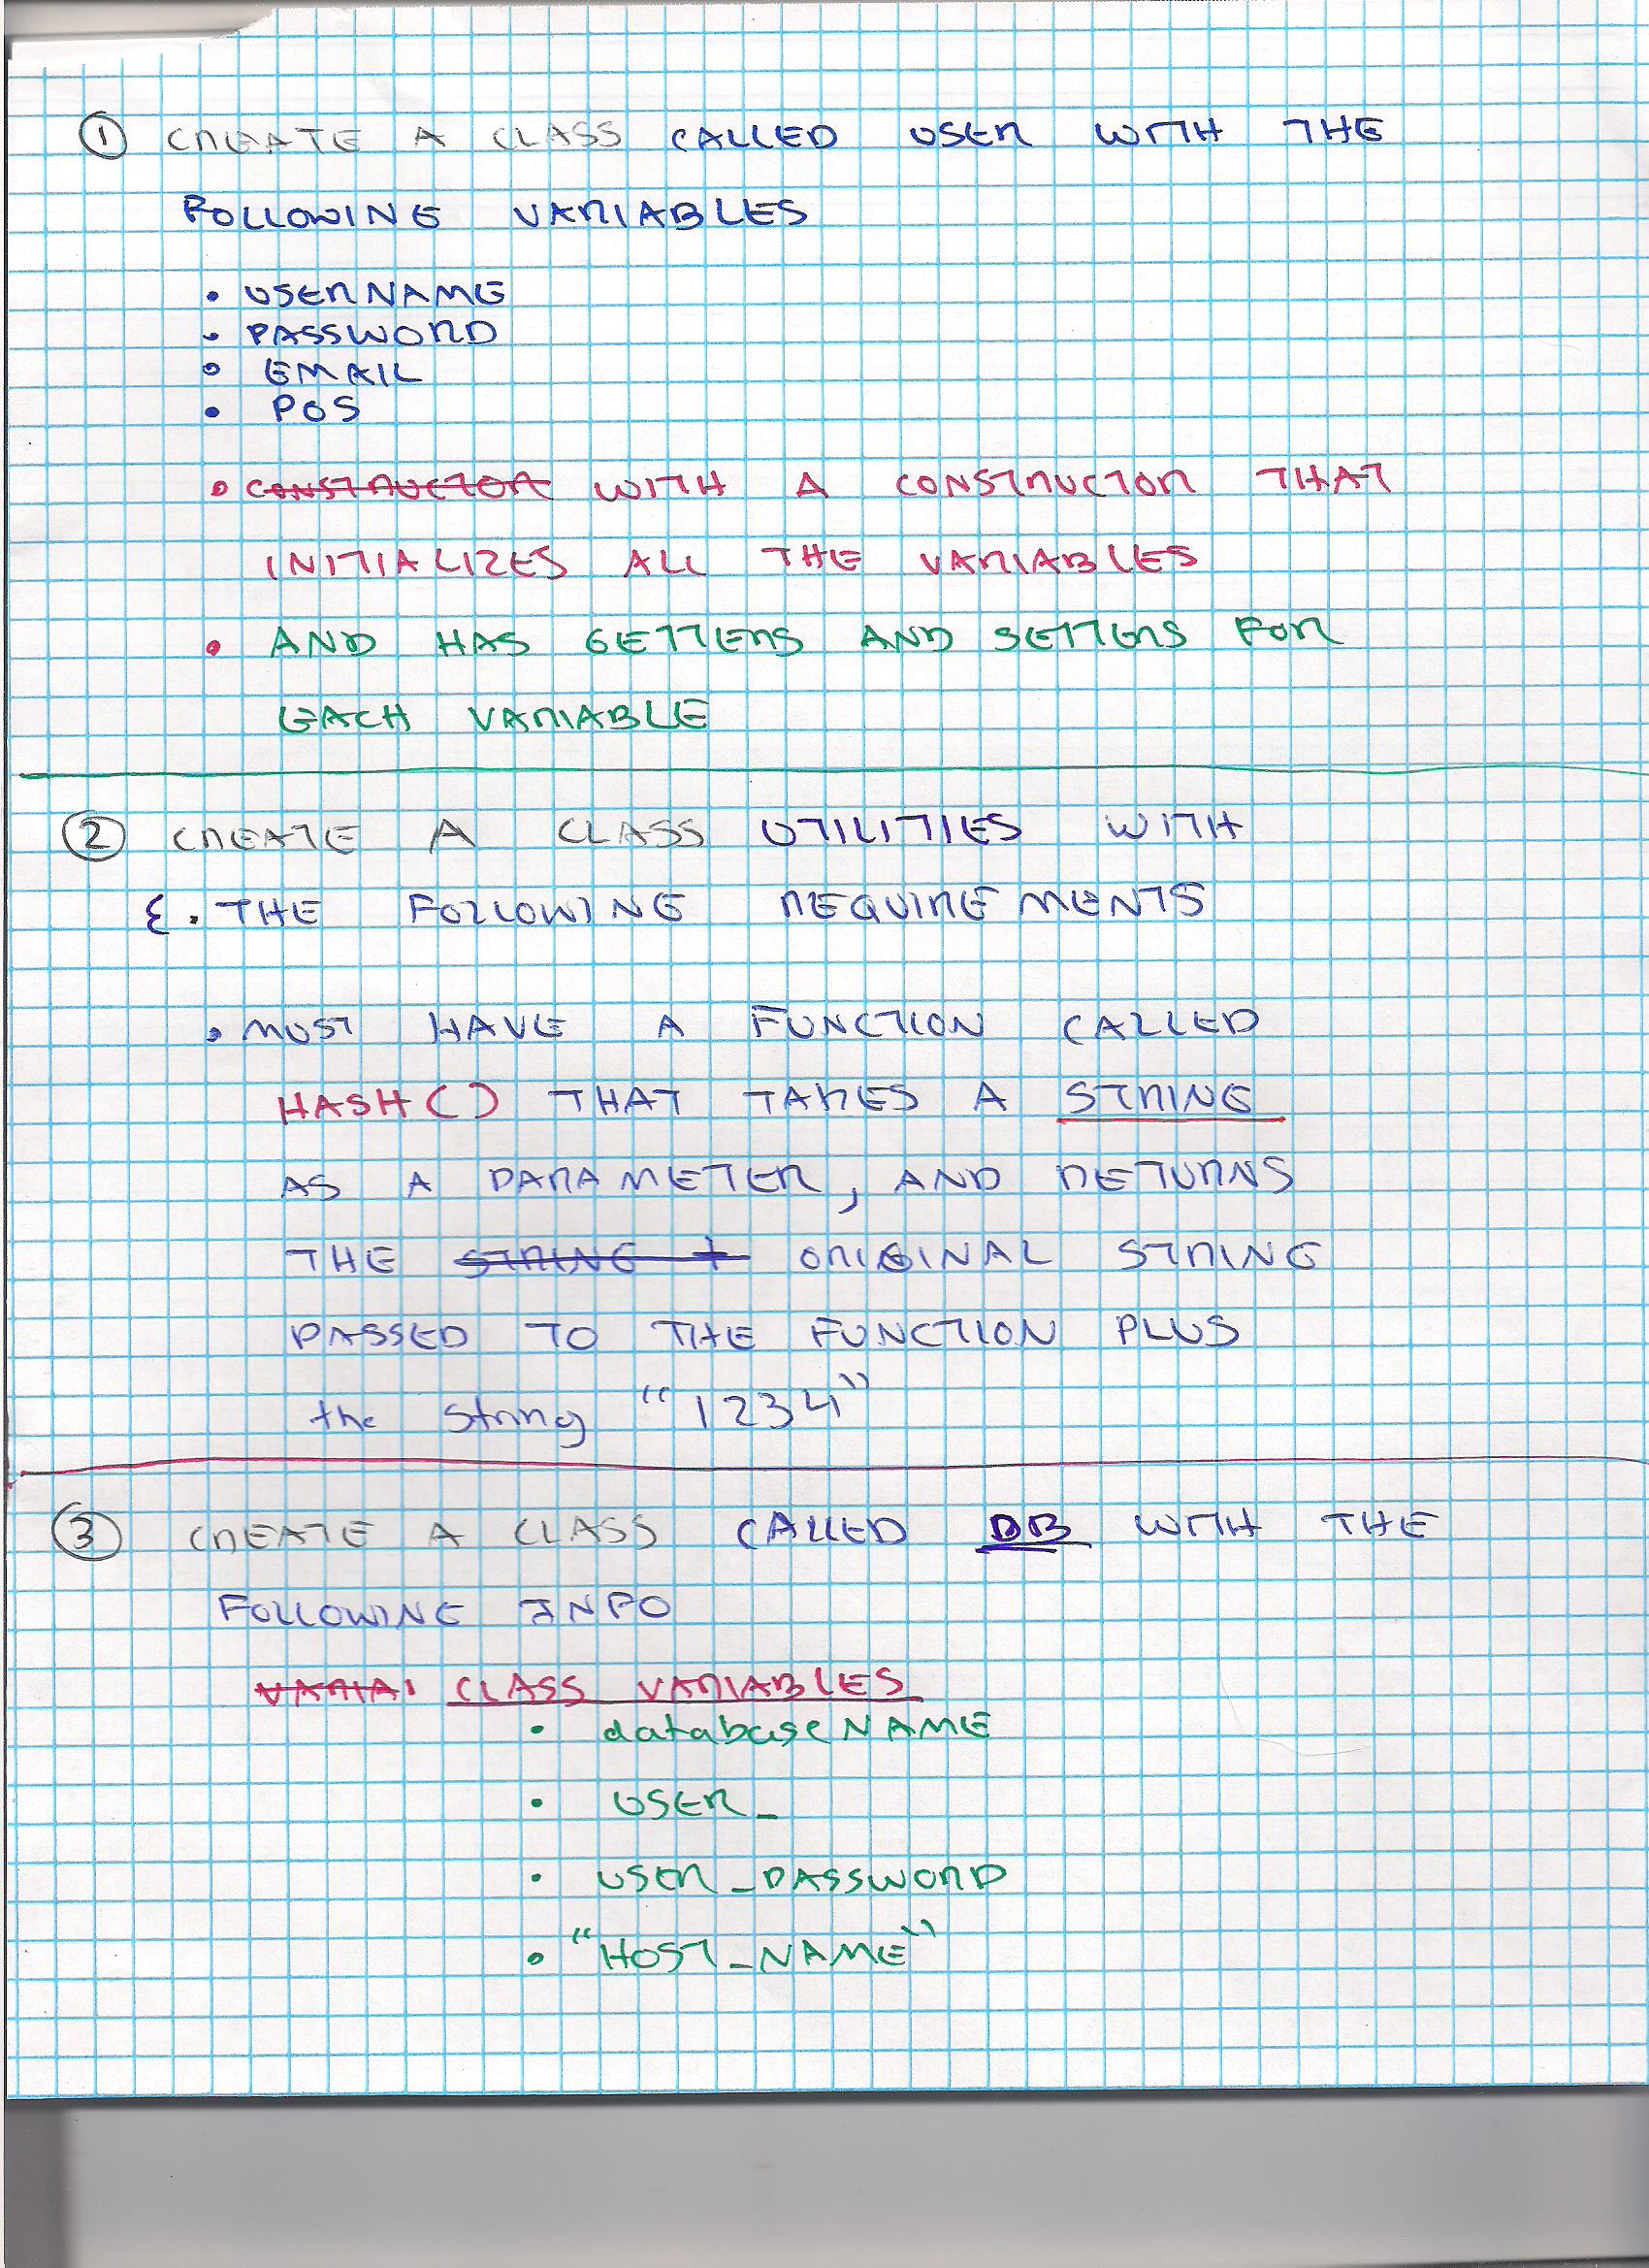 ① CREATE A CLASS CALLED USER WITH THE
FOLLOWING VARIABLES
• USERNAME
• PASSWORD
• EMAIL
• POS
• CONSTRUCTOR WITH A CONSTRUCTOR THAT
INITIALIZES ALL THE VARIABLES
• AND HAS GETTERS AND SETTERS FOR
EACH VARIABLE
② CREATE A CLASS UTILITIES WITH
{. THE FOLLOWING REQUIREMENTS
• MUST HAVE A FUNCTION CALLED
HASH() THAT TAKES A STRING
AS A PARAMETER, AND RETURNS
THE STRING + ORIGINAL STRING
PASSED TO THE FUNCTION PLUS
the string "1234"
③ CREATE A CLASS CALLED DB WITH THE
FOLLOWING INFO
VARIA CLASS VARIABLES
• databaseNAME
• USER_
• USER_PASSWORD
• "HOST_NAME"